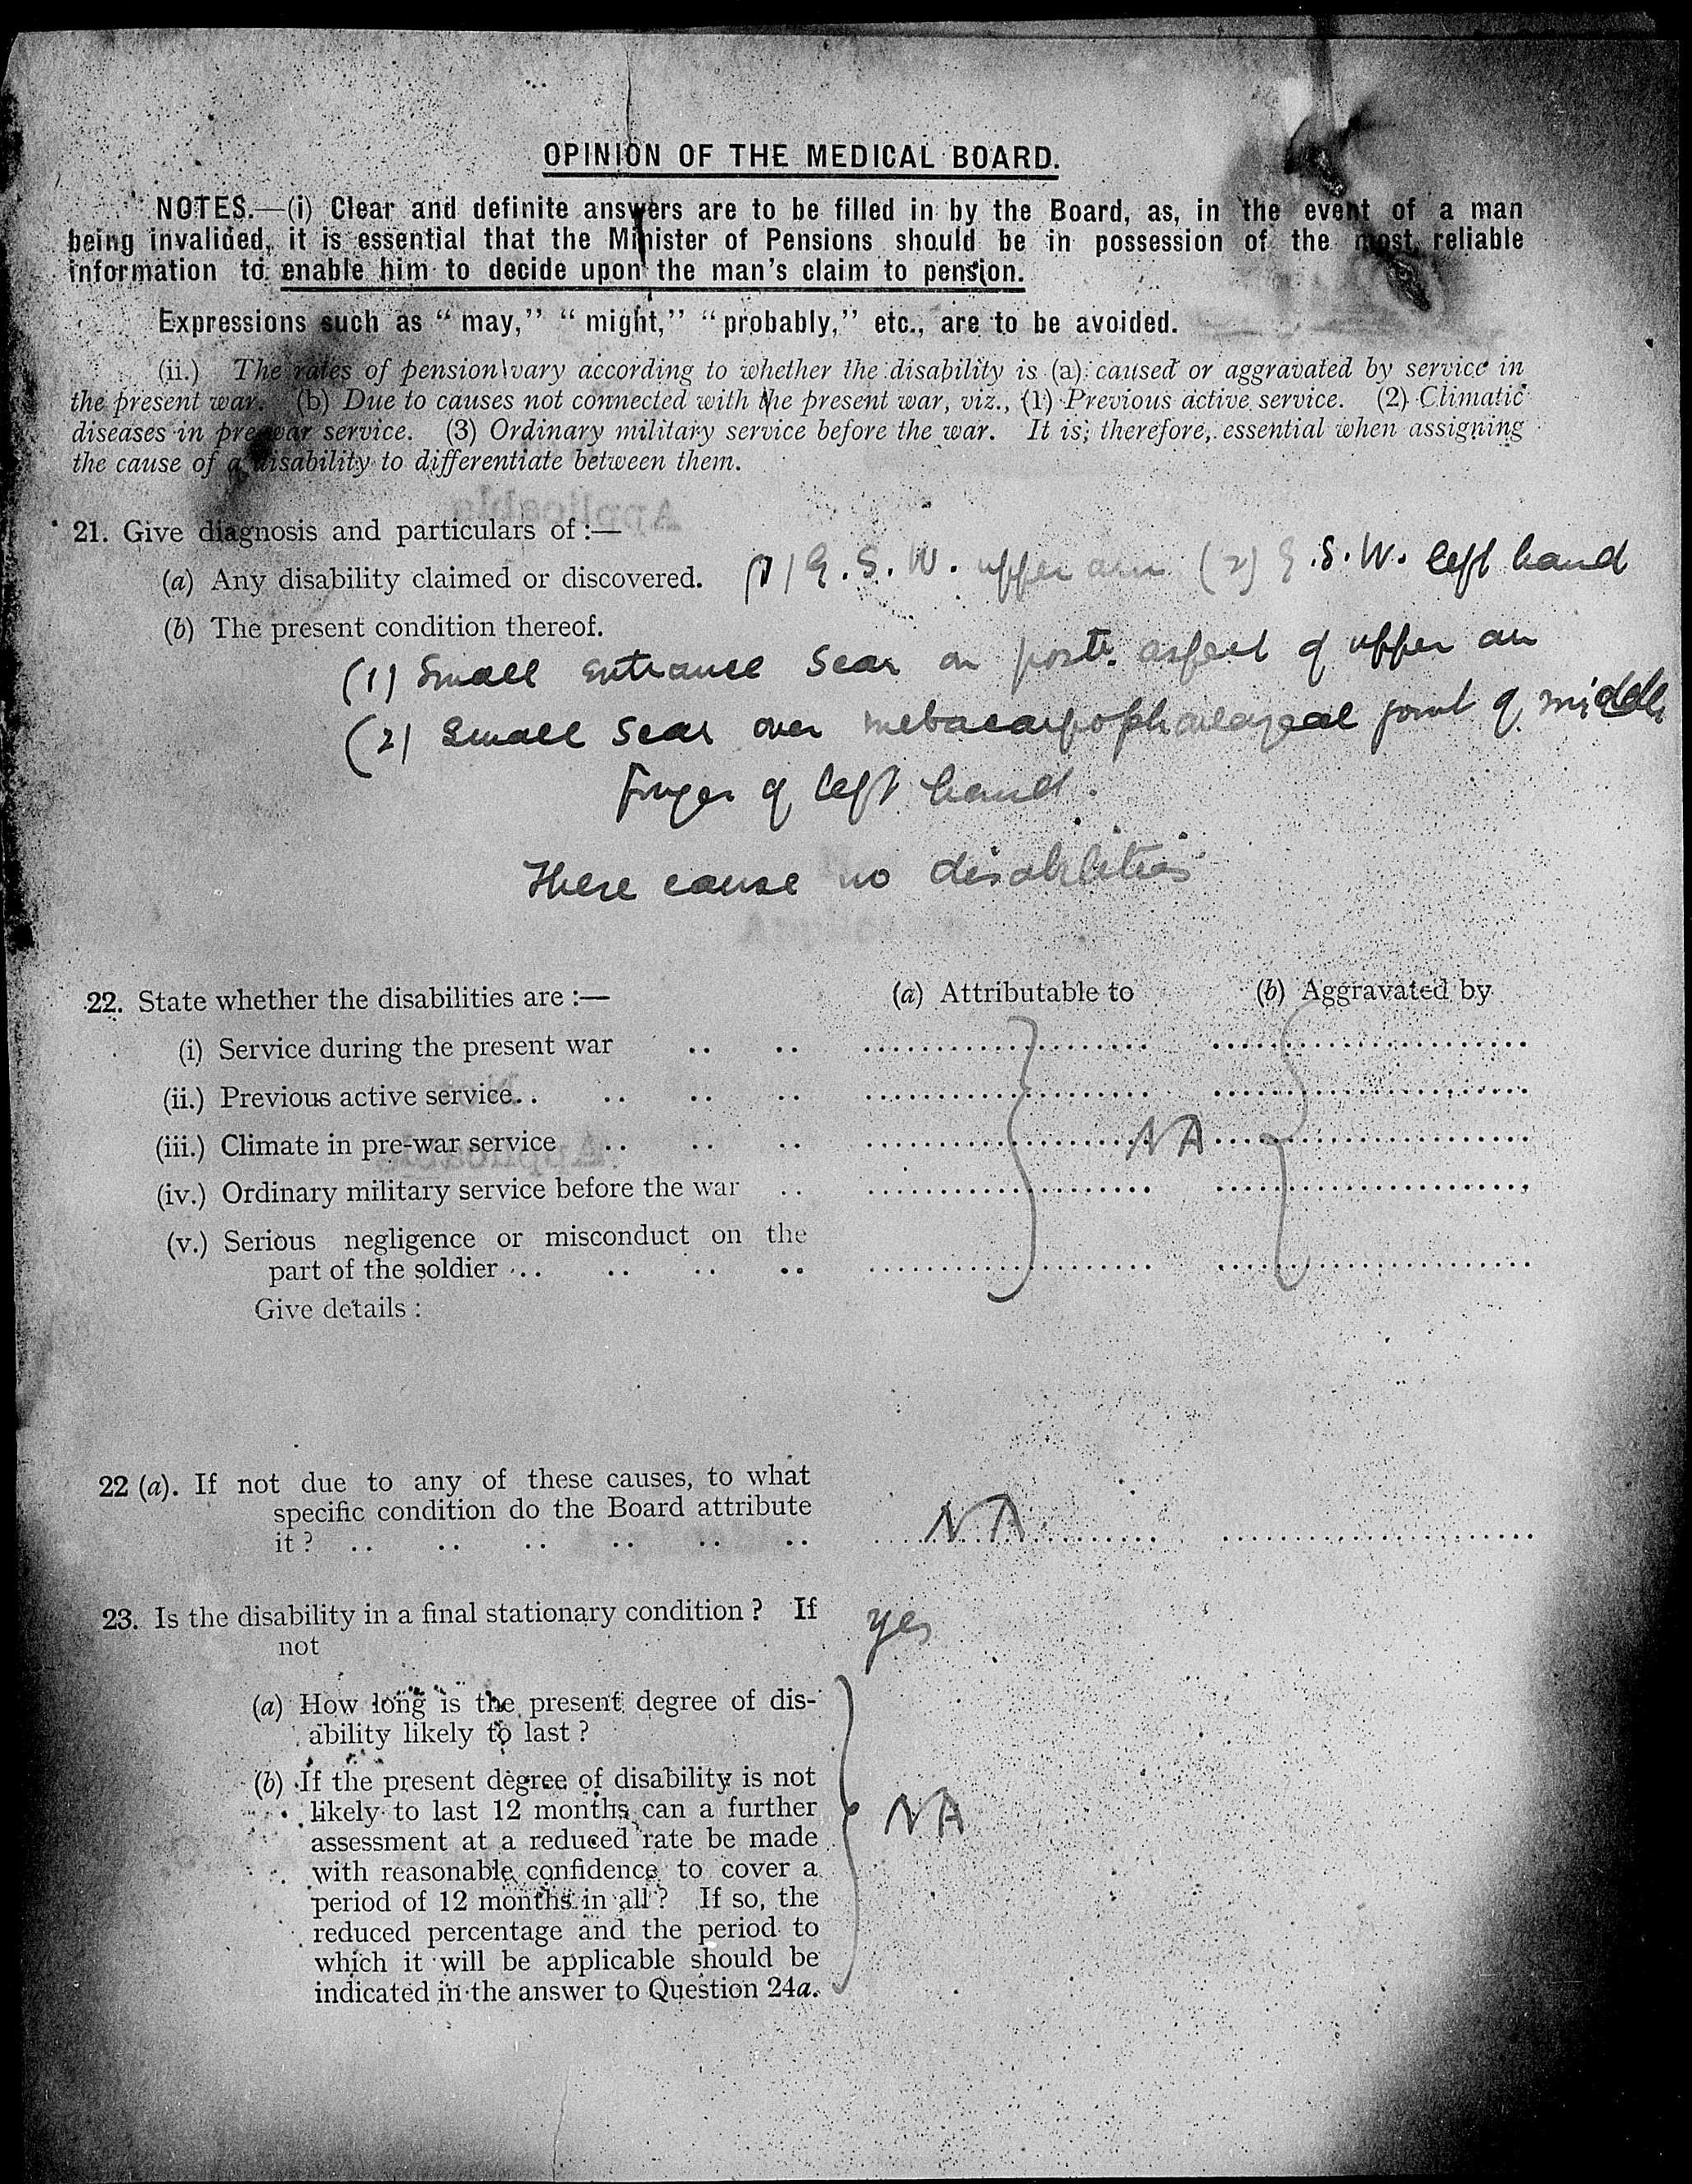 OPINION OF THE MEDICAL BOARD.
NOTES.—(i) Clear and definite answers are to be filled in by the Board, as, in the event of a man
being invalided, it is essential that the Minister of Pensions should be in possession of the most reliable
information to enable him to decide upon the man's claim to pension.
Expressions such as "may," "might," "probably," etc., are to be avoided.
(ii.) The rates of pension vary according to whether the disability is (a) caused or aggravated by service in
the present war. (b) Due to causes not connected with the present war, viz., (1) Previous active service. (2) Climatic
diseases in pre-war service. (3) Ordinary military service before the war. It is, therefore, essential when assigning
the cause of a disability to differentiate between them.
21. Give diagnosis and particulars of :—
(a) Any disability claimed or discovered. (1) G.S.W. upper arm (2) G.S.W. left hand
(b) The present condition thereof.
(1) Small entrance scar on post. aspect of upper arm
(2) Small scar over metacarpophalangeal joint of middle
finger of left hand.
These cause no disabilities
22. State whether the disabilities are :— (a) Attributable to (b) Aggravated by
(i) Service during the present war .. ..
(ii.) Previous active service.. .. .. ..
(iii.) Climate in pre-war service .. .. .. NA
(iv.) Ordinary military service before the war ..
(v.) Serious negligence or misconduct on the
part of the soldier .. .. .. ..
Give details :
22 (a). If not due to any of these causes, to what
specific condition do the Board attribute
it ? .. .. .. .. .. .. NA
23. Is the disability in a final stationary condition ? If yes
not
(a) How long is the present degree of dis-
ability likely to last ?
(b) If the present degree of disability is not
likely to last 12 months can a further NA
assessment at a reduced rate be made
with reasonable confidence to cover a
period of 12 months in all ? If so, the
reduced percentage and the period to
which it will be applicable should be
indicated in the answer to Question 24a.